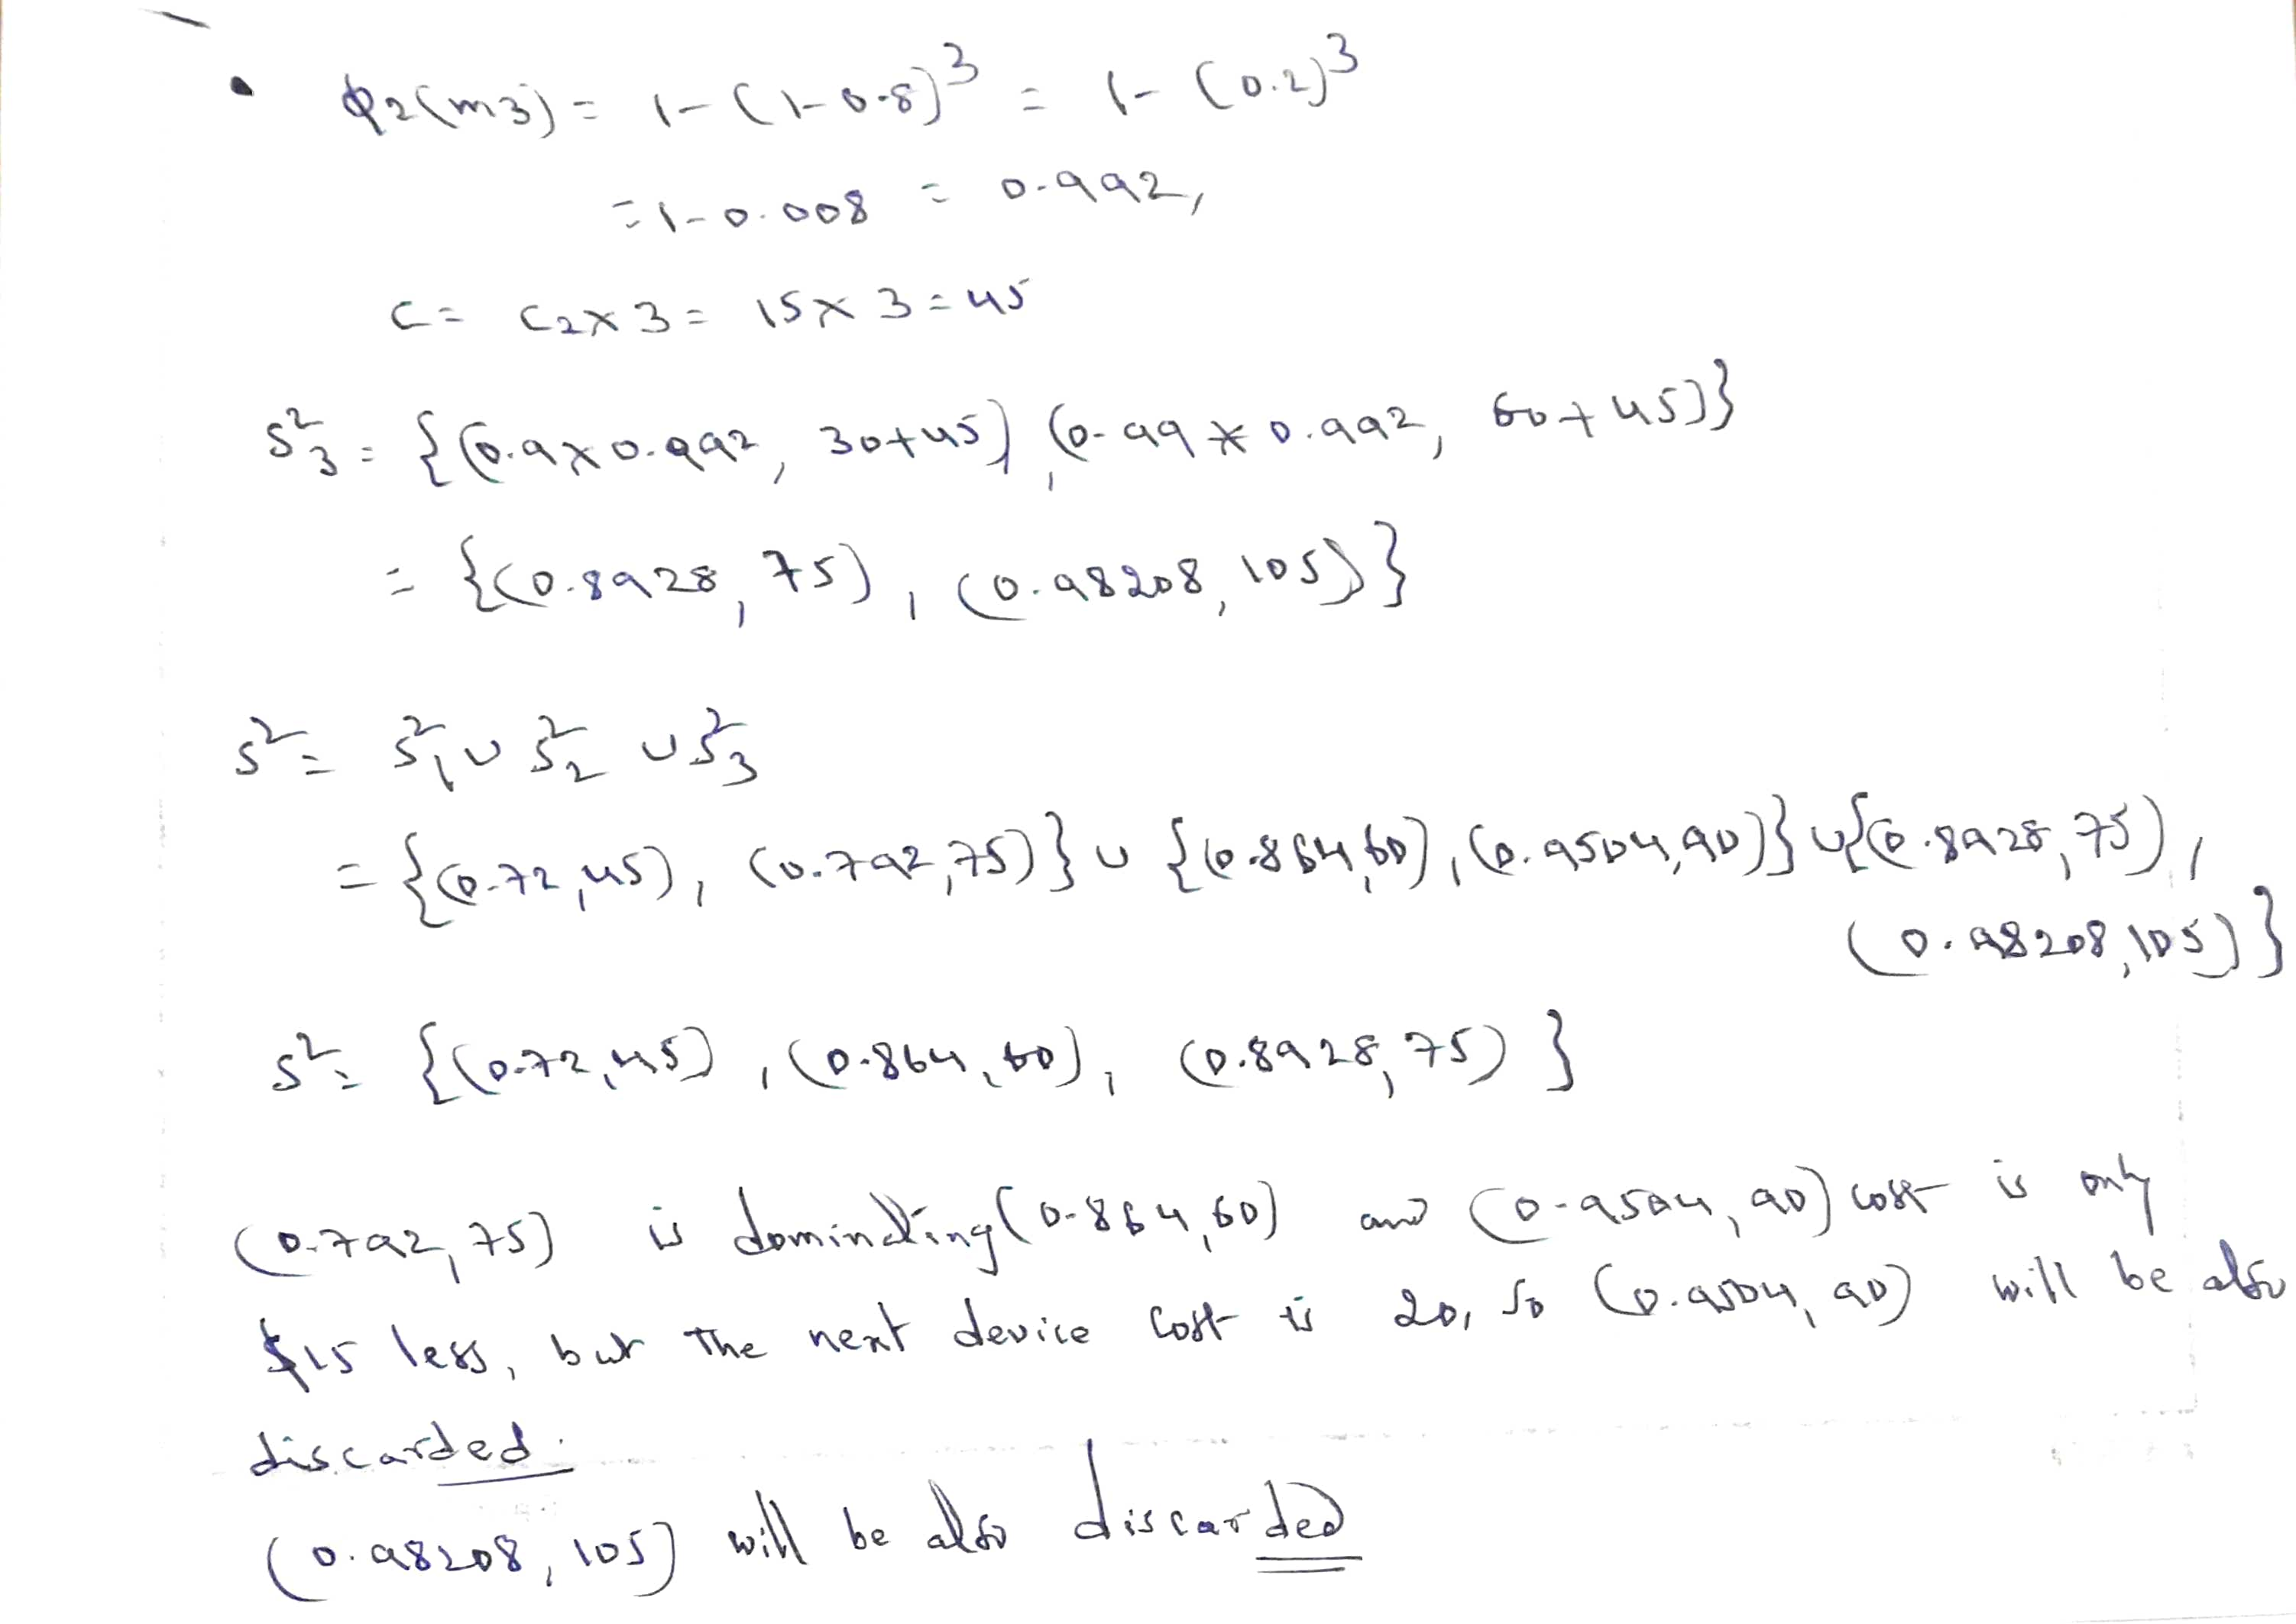 • φ2(m3) = 1-(1-0.8)³ = 1-(0.2)³
= 1-0.008 = 0.992,
C = C2×3 = 15×3 = 45
S²₃ = {(0.9×0.992, 30+45), (0.99*0.992, 60+45)}
= {(0.8928, 75), (0.98208, 105)}
S² = S²₁ ∪ S²₂ ∪ S²₃
= {(0.72,45), (0.792,75)} ∪ {(0.864,60), (0.9504,90)} ∪ {(0.8928,75),
(0.98208,105)}
S² = {(0.72,45), (0.864,60), (0.8928,75)}
(0.792,75) is dominating (0.864,60) and (0.9504,90) cost is only
$15 less, but the next device cost is 20, so (0.9504,90) will be also
discarded.
(0.98208, 105) will be also discarded